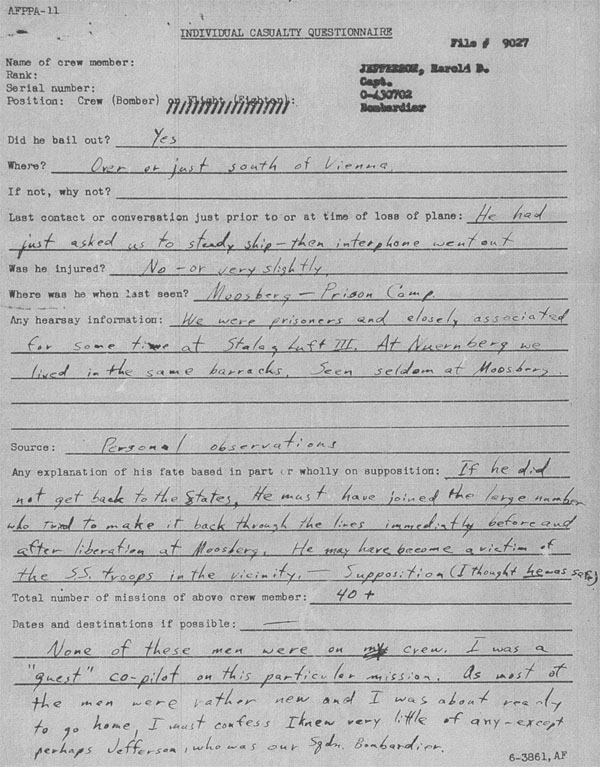 AFPPA-11
INDIVIDUAL CASUALTY QUESTIONNAIRE
File # 9027
Name of crew member: JEFFERSON, Harold D.
Rank: Capt.
Serial number: O-430702
Position: Crew (Bomber) or Flight (Fighter): Bombardier
Did he bail out? Yes
Where? Over or just south of Vienna.
If not, why not?
Last contact or conversation just prior to or at time of loss of plane: He had
just asked us to steady ship - then interphone went out
Was he injured? No - or very slightly.
Where was he when last seen? Moosberg - Prison Camp
Any hearsay information: We were prisoners and closely associated
for some time at Stalag Luft III. At Nuernberg we
lived in the same barracks. Seen seldom at Moosberg.
Source: Personal observations
Any explanation of his fate based in part or wholly on supposition: If he did
not get back to the States, He must have joined the large number
who tried to make it back through the lines immediatly before and
after liberation at Moosberg. He may have become a victim of
the S.S. troops in the vicinity. - Supposition (I thought he was safe)
Total number of missions of above crew member: 40 +
Dates and destinations if possible: —
None of these men were on my crew. I was a
"guest" co-pilot on this particular mission. As most of
the men were rather new and I was about ready
to go home, I must confess I knew very little of any - except
perhaps Jefferson, who was our Sqdn. Bombardier.
6-3861, AF